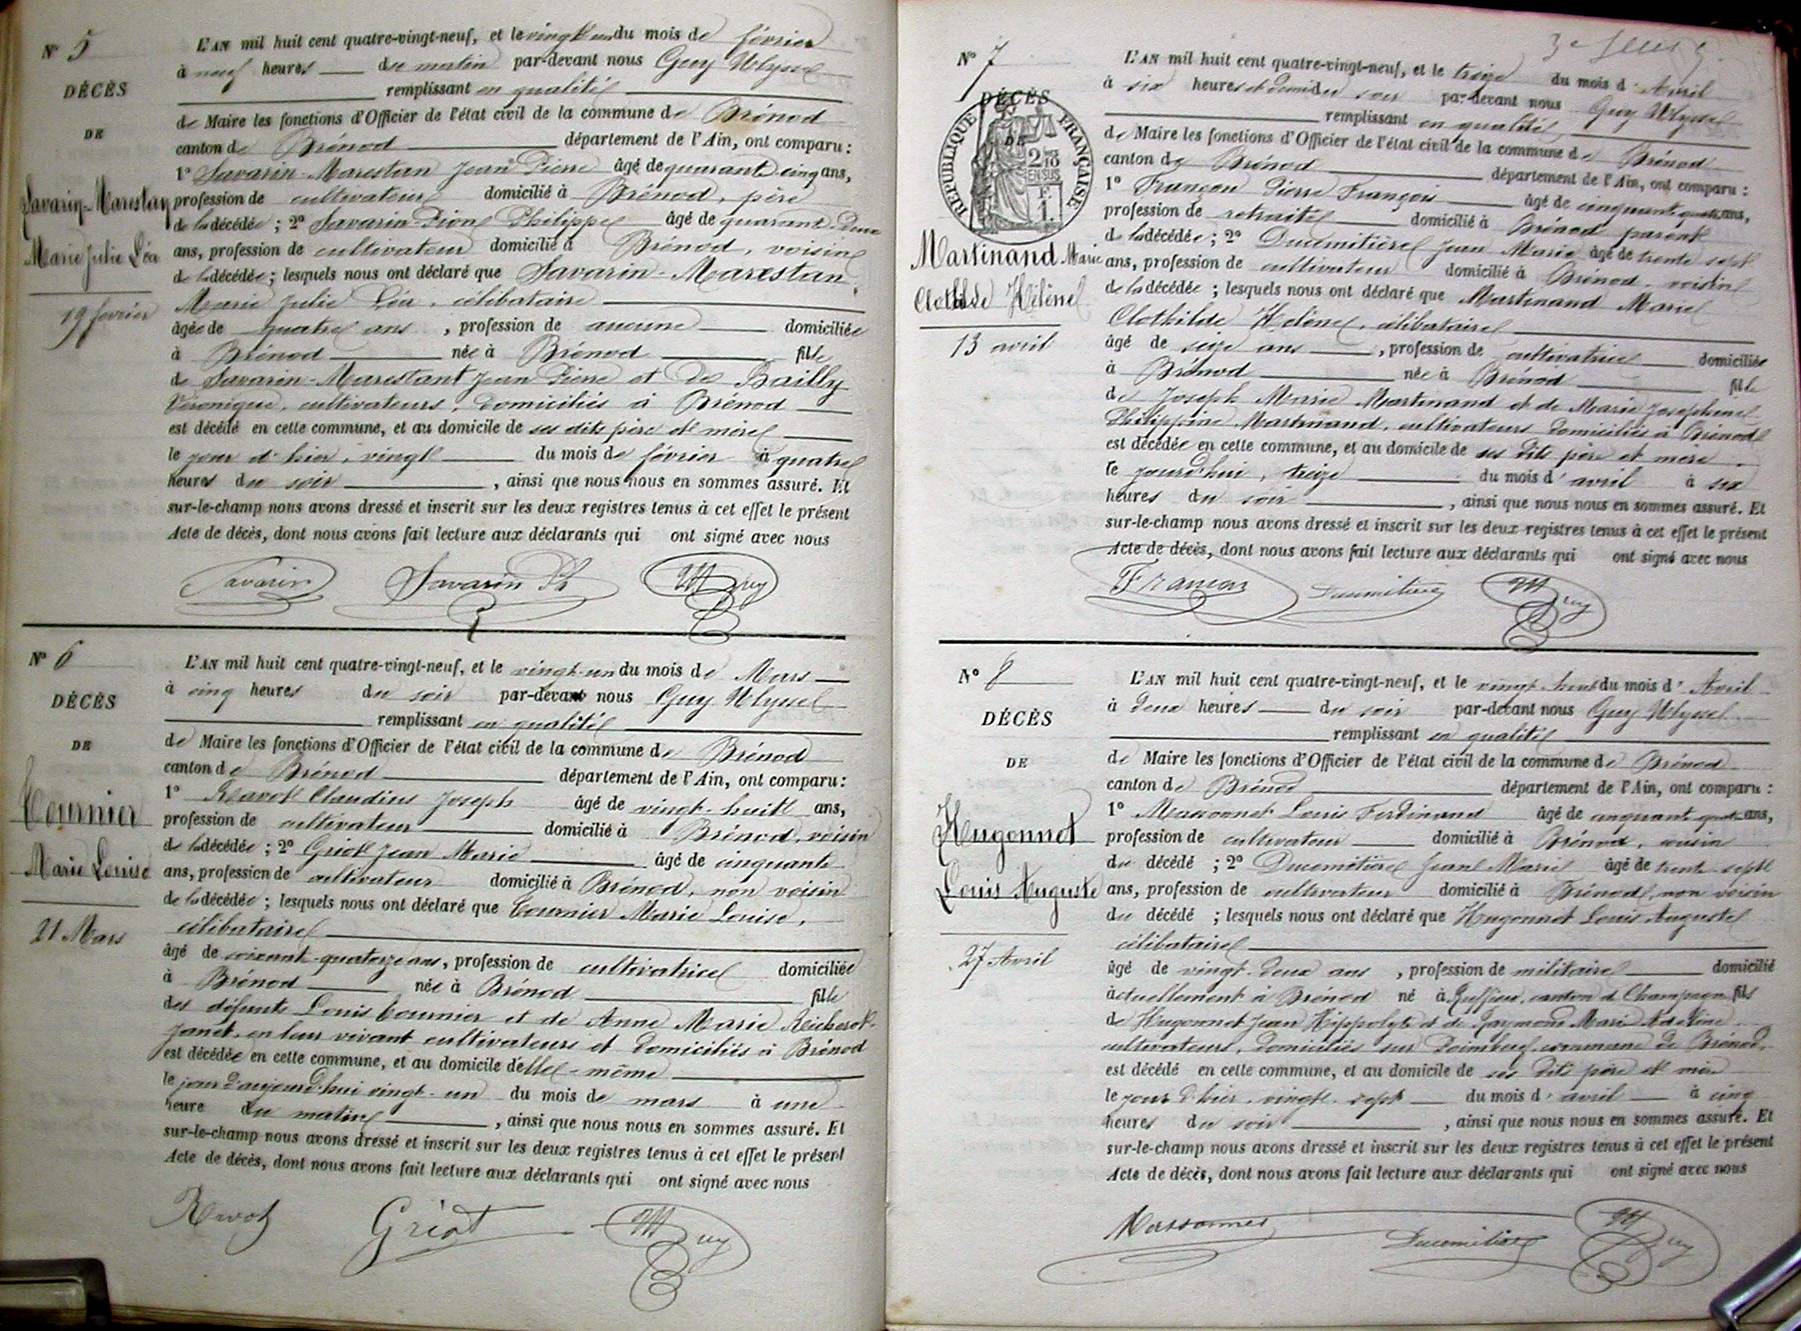 N° 5
DÉCÈS
DE
Savarin-Marestan
Marie Julie Léa
19 février
L'AN mil huit cent quatre-vingt-neuf, et le vingt un du mois de février
à neuf heures du matin par-devant nous Guy Ulysse
remplissant en qualité
de Maire les fonctions d'Officier de l'état civil de la commune de Brénod
canton de Brénod département de l'Ain, ont comparu :
1° Savarin-Marestan Jean Pierre âgé de quarant cinq ans,
profession de cultivateur domicilié à Brénod, père
de la décédée ; 2° Savarin-Dion Philippe âgé de quarant Deux
ans, profession de cultivateur domicilié à Brénod, voisin
de la décédée ; lesquels nous ont déclaré que Savarin-Marestan
Marie Julie Léa, célibataire
âgée de quatre ans, profession de aucune domiciliée
à Brénod née à Brénod fille
de Savarin-Marestant Jean Pierre et de Bailly
Véronique, cultivateurs, domiciliés à Brénod
est décédé en cette commune, et au domicile de ses dits père et mère
le jour d'hier, vingt du mois de février à quatre
heures du soir, ainsi que nous nous en sommes assuré. Et
sur-le-champ nous avons dressé et inscrit sur les deux registres tenus à cet effet le présent
Acte de décès, dont nous avons fait lecture aux déclarants qui ont signé avec nous
Savarin Savarin Ph Guy
N° 6
DÉCÈS
DE
Tournier
Marie Louise
21 Mars
L'AN mil huit cent quatre-vingt-neuf, et le vingt-un du mois de Mars
à cinq heures du soir par-devant nous Guy Ulysse
remplissant en qualité
de Maire les fonctions d'Officier de l'état civil de la commune de Brénod
canton de Brénod département de l'Ain, ont comparu :
1° Ravot Claudius Joseph âgé de vingt-huit ans,
profession de cultivateur domicilié à Brénod, voisin
de la décédée ; 2° Griot Jean Marie âgé de cinquante
ans, profession de cultivateur domicilié à Brénod, non voisin
de la décédée ; lesquels nous ont déclaré que Tournier Marie Louise,
célibataire
âgé de soixant-quatorze ans, profession de cultivatrice domiciliée
à Brénod née à Brénod fille
des défunts Louis Tournier et de Anne Marie
Janet, en leur vivant cultivateurs et domiciliés à Brénod
est décédée en cette commune, et au domicile d'elle-même
le jour d'aujourd'hui vingt-un du mois de mars à une
heure du matin, ainsi que nous nous en sommes assuré. Et
sur-le-champ nous avons dressé et inscrit sur les deux registres tenus à cet effet le présent
Acte de décès, dont nous avons fait lecture aux déclarants qui ont signé avec nous
Ravot Griot Guy
3e feuille
N° 7
DÉCÈS
DE
RÉPUBLIQUE FRANÇAISE
2/10 EN SUS
Martinand Marie
Clotilde Hélène
13 avril
L'AN mil huit cent quatre-vingt-neuf, et le treize du mois d'Avril
à six heures et demi du soir par-devant nous Guy Ulysse
remplissant en qualité
de Maire les fonctions d'Officier de l'état civil de la commune de Brénod
canton de Brénod département de l'Ain, ont comparu :
1° Françon Pierre François âgé de cinquant quatre ans,
profession de retraité domicilié à Brénod parent
de la décédée ; 2° Ducimitière Jean Marie âgé de trente sept
ans, profession de cultivateur domicilié à Brénod, voisin
de la décédée ; lesquels nous ont déclaré que Martinand Marie
Clothilde Hélène, célibataire
âgé de seize ans, profession de cultivatrice domiciliée
à Brénod née à Brénod fille
de Joseph Marie Martinand et de Marie Josephine
Philippine Martinand, cultivateurs domiciliés à Brénod
est décédée en cette commune, et au domicile de ses dits père et mère
le jourd'hui, treize du mois d'avril à six
heures du soir, ainsi que nous nous en sommes assuré. Et
sur-le-champ nous avons dressé et inscrit sur les deux registres tenus à cet effet le présent
Acte de décès, dont nous avons fait lecture aux déclarants qui ont signé avec nous
Françon Ducimitière Guy
N° 8
DÉCÈS
DE
Hugonnet
Louis Auguste
27 Avril
L'AN mil huit cent quatre-vingt-neuf, et le vingt-huit du mois d'Avril
à deux heures du soir par-devant nous Guy Ulysse
remplissant en qualité
de Maire les fonctions d'Officier de l'état civil de la commune de Brénod
canton de Brénod département de l'Ain, ont comparu :
1° Massonnet Louis Ferdinand âgé de cinquante quatre ans,
profession de cultivateur domicilié à Brénod, cousin
du décédé ; 2° Ducimitière Jean Marie âgé de trent-sept
ans, profession de cultivateur domicilié à Brénod, non voisin
du décédé ; lesquels nous ont déclaré que Hugonnet Louis Auguste
célibataire
âgé de vingt-deux ans, profession de militaire domicilié
actuellement à Brénod né à Ruffieu, canton d Champagne fils
de Hugonnet Jean Hippolyte et de Raymond Marie Adeline
cultivateurs, domiciliés sur commune de Brénod
est décédé en cette commune, et au domicile de ses dits père et mère
le jour d'hier, vingt-sept du mois d'avril à cinq
heures du soir, ainsi que nous nous en sommes assuré. Et
sur-le-champ nous avons dressé et inscrit sur les deux registres tenus à cet effet le présent
Acte de décès, dont nous avons fait lecture aux déclarants qui ont signé avec nous
Massonnet Ducimitière Guy